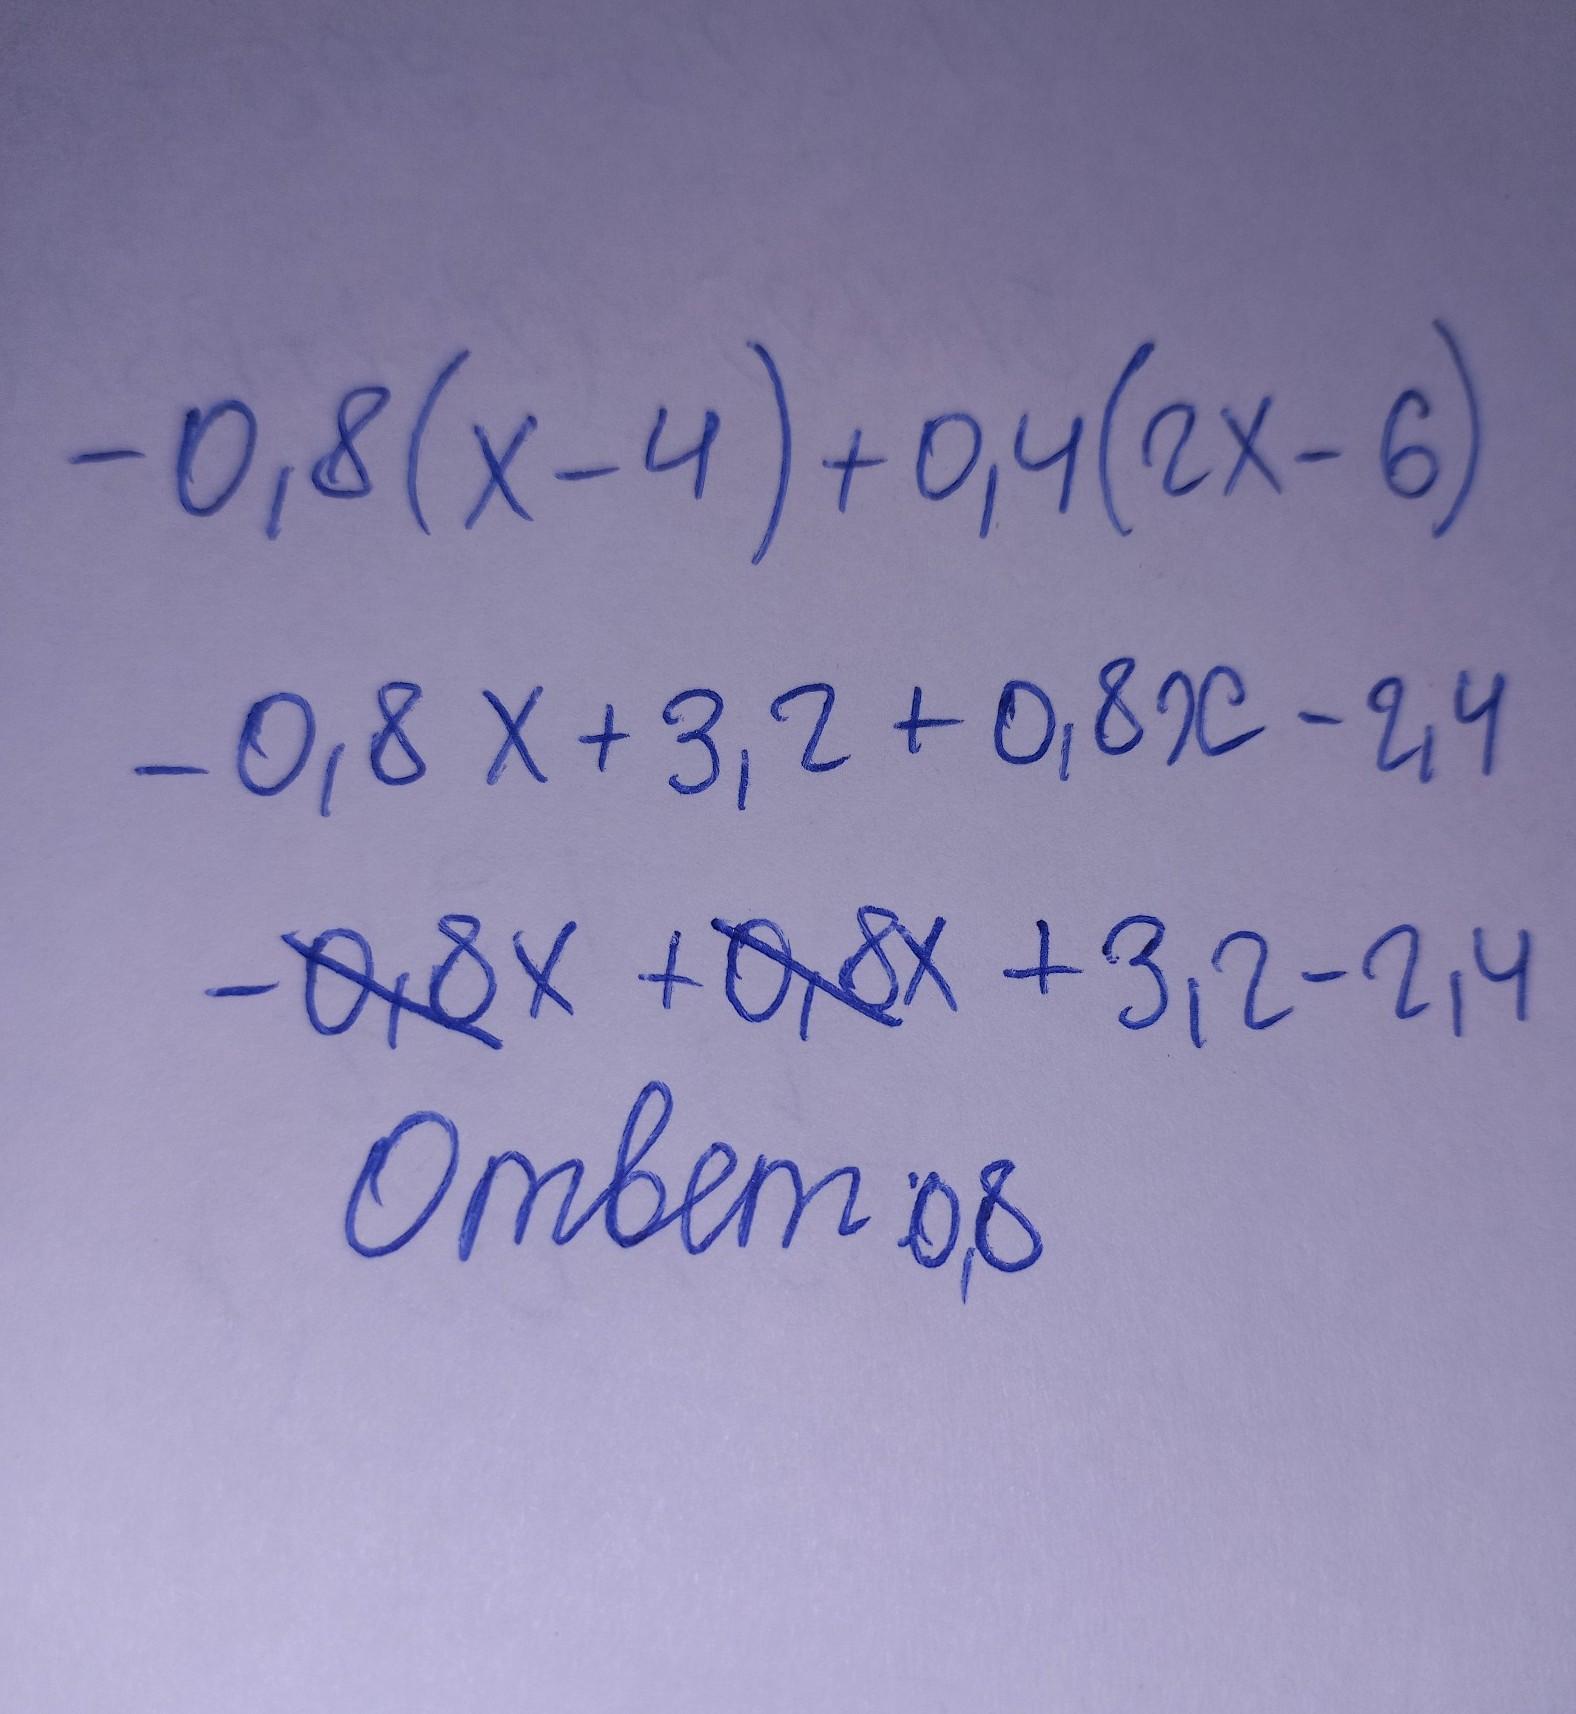 -0,8(x-4)+0,4(2x-6)
-0,8x+3,2+0,8x-2,4
-0,8x+0,8x+3,2-2,4
Ответ:0,8